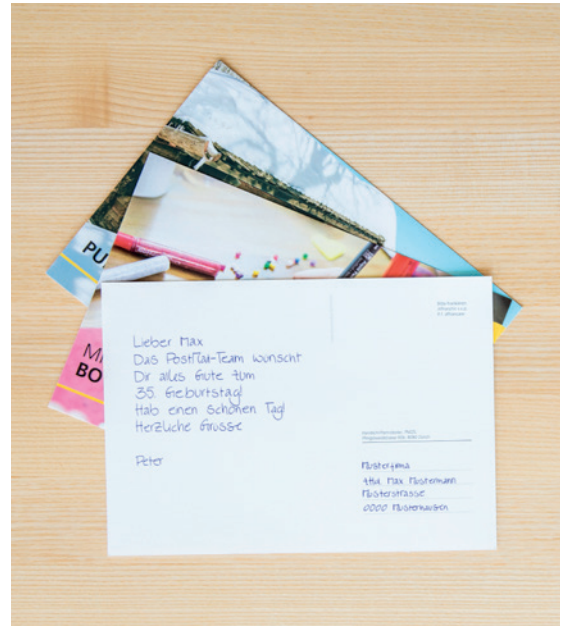 PU
MI
BO
Lieber Max
Das PostMai-Team wünscht
Dir alles Gute zum
35. Geburtstag!
Hab einen schönen Tag!
Herzliche Grüsse
Peter
Musterfirma
zHd. Max Mustermann
Musterstrasse
0000 Musterhausen